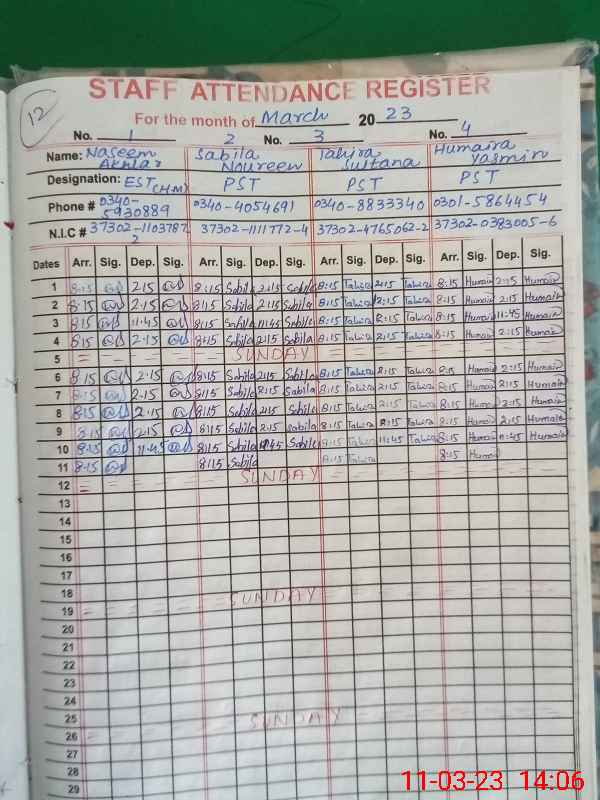 12
STAFF ATTENDANCE REGISTER
For the month of March 2023
No. 1 2 No. 3 No. 4
Name: Naseem Akhtar Sabila Noureen Tahira Sultana Humaira Yasmin
Designation: EST(HM) PST PST PST
Phone # 0340-5930889 0340-4054691 0340-8833340 0301-5864454
N.I.C # 37302-1103787-2 37302-1111772-4 37302-4765062-2 37302-0383005-6
Dates Arr. Sig. Dep. Sig. Arr. Sig. Dep. Sig. Arr. Sig. Dep. Sig. Arr. Sig. Dep. Sig.
1 8:15 2:15 8:15 Sabila 2:15 Sabila 8:15 Tahira 2:15 Tahira 8:15 Humair 2:15 Humair
2 8:15 2:15 8:15 Sabila 2:15 Sabila 8:15 Tahira 2:15 Tahira 8:15 Humair 2:15 Humair
3 8:15 11:45 8:15 Sabila 11:45 Sabila 8:15 Tahira Tahira 8:15 Humair 11:45 Humair
4 8:15 2:15 8:15 Sabila 2:15 Sabila 8:15 Tahira 2:15 Tahira 8:15 Humair 2:15 Humair
5 = SUNDAY
6 8:15 2:15 8:15 Sabila 2:15 Sabila 8:15 Tahira 2:15 Tahira 8:15 Humair 2:15 Humair
7 8:15 2:15 8:15 Sabila 2:15 Sabila 8:15 Tahira 2:15 Tahira 8:15 Humair 2:15 Humair
8 8:15 2:15 8:15 Sabila 2:15 Sabila 8:15 Tahira 2:15 Tahira 8:15 Humair 2:15 Humair
9 8:15 2:15 8:15 Sabila 2:15 Sabila 8:15 Tahira 2:15 Tahira 8:15 Humair 2:15 Humair
10 8:15 11:45 8:15 Sabila 11:45 Sabila 8:15 Tahira 11:45 Tahira 8:15 Humair 11:45 Humair
11 8:15 8:15 Sabila 8:15 Tahira 8:15 Humair
12 = SUNDAY
13
14
15
16
17
18
19 = SUNDAY
20
21
22
23
24
25
26 = SUNDAY
27
28
29
11-03-23 14:06